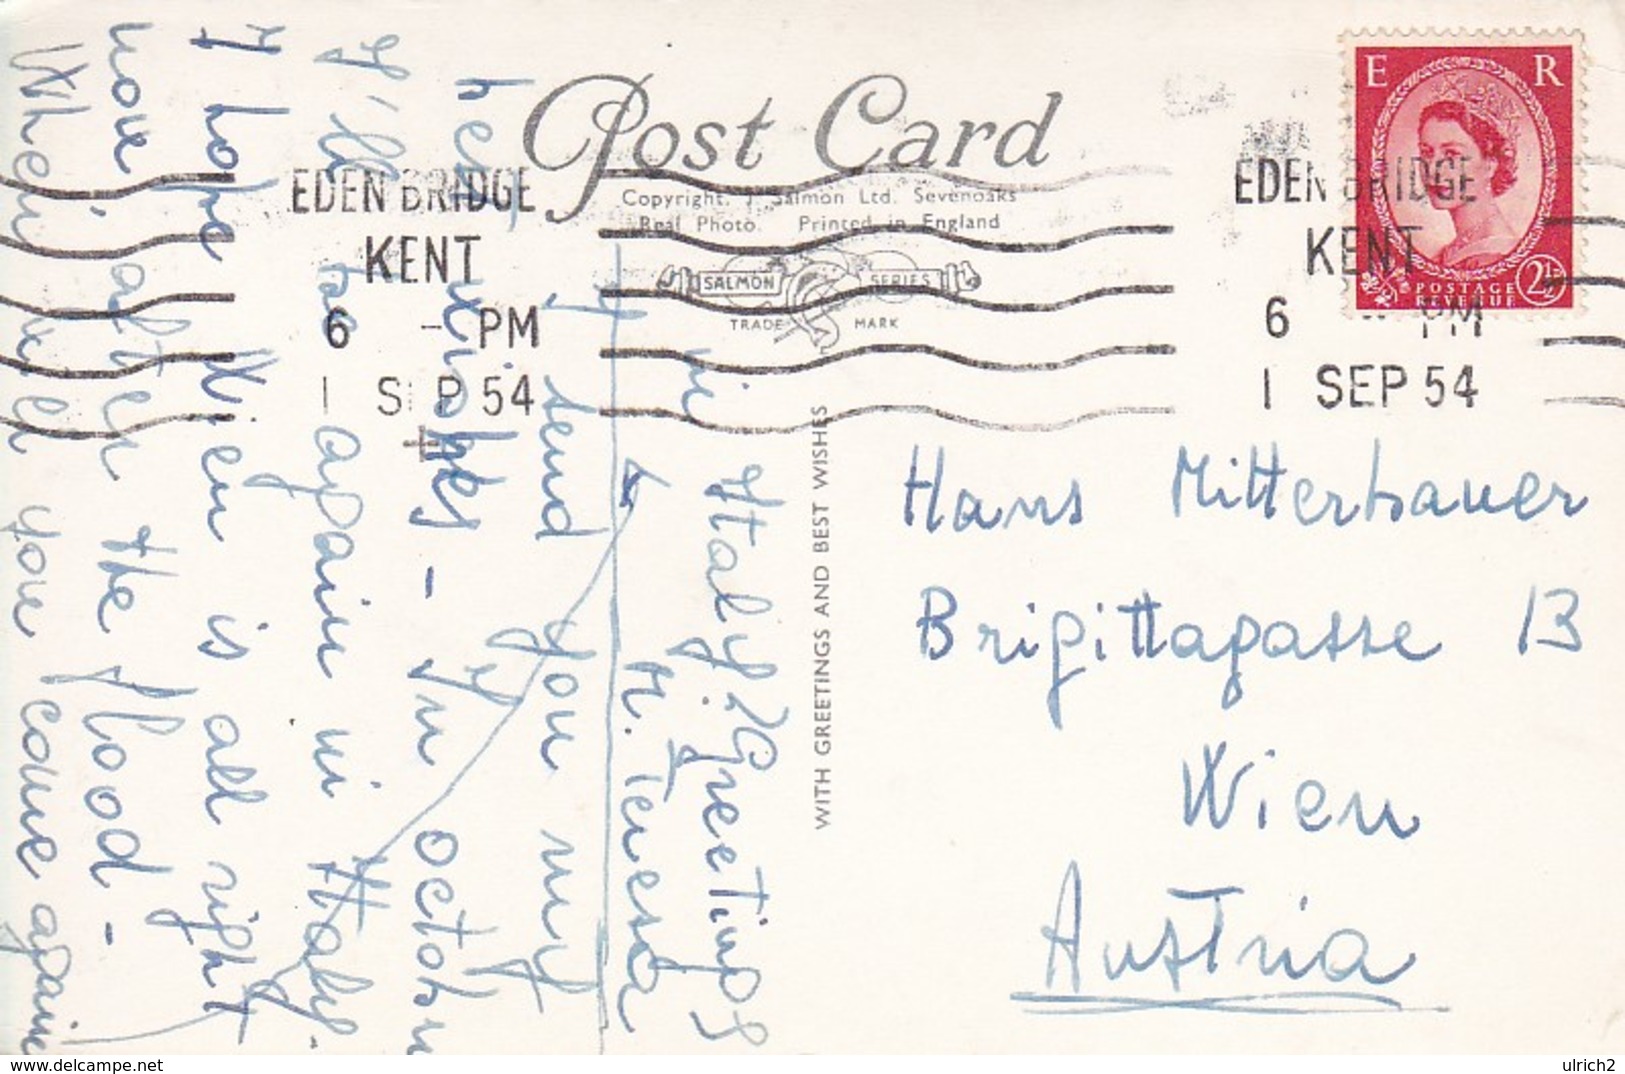 Post Card
Copyright. J. Salmon Ltd. Sevenoaks
Real Photo. Printed in England
SALMON SERIES
TRADE MARK
E R
POSTAGE
REVENUE
2½D
EDEN BRIDGE
KENT
6 - PM
1 SEP 54
EDEN BRIDGE
KENT
6 - PM
1 SEP 54
WITH GREETINGS AND BEST WISHES
I send you my
best wishes - In october
I'll be again in Italy.
I hope Wien is all right
now after the flood -
When will you come again
in Italy? Greetings
M. Teresa
Hans Mitterbauer
Brigittagasse 13
Wien
Austria
ulrich2
http://www.delcampe.net